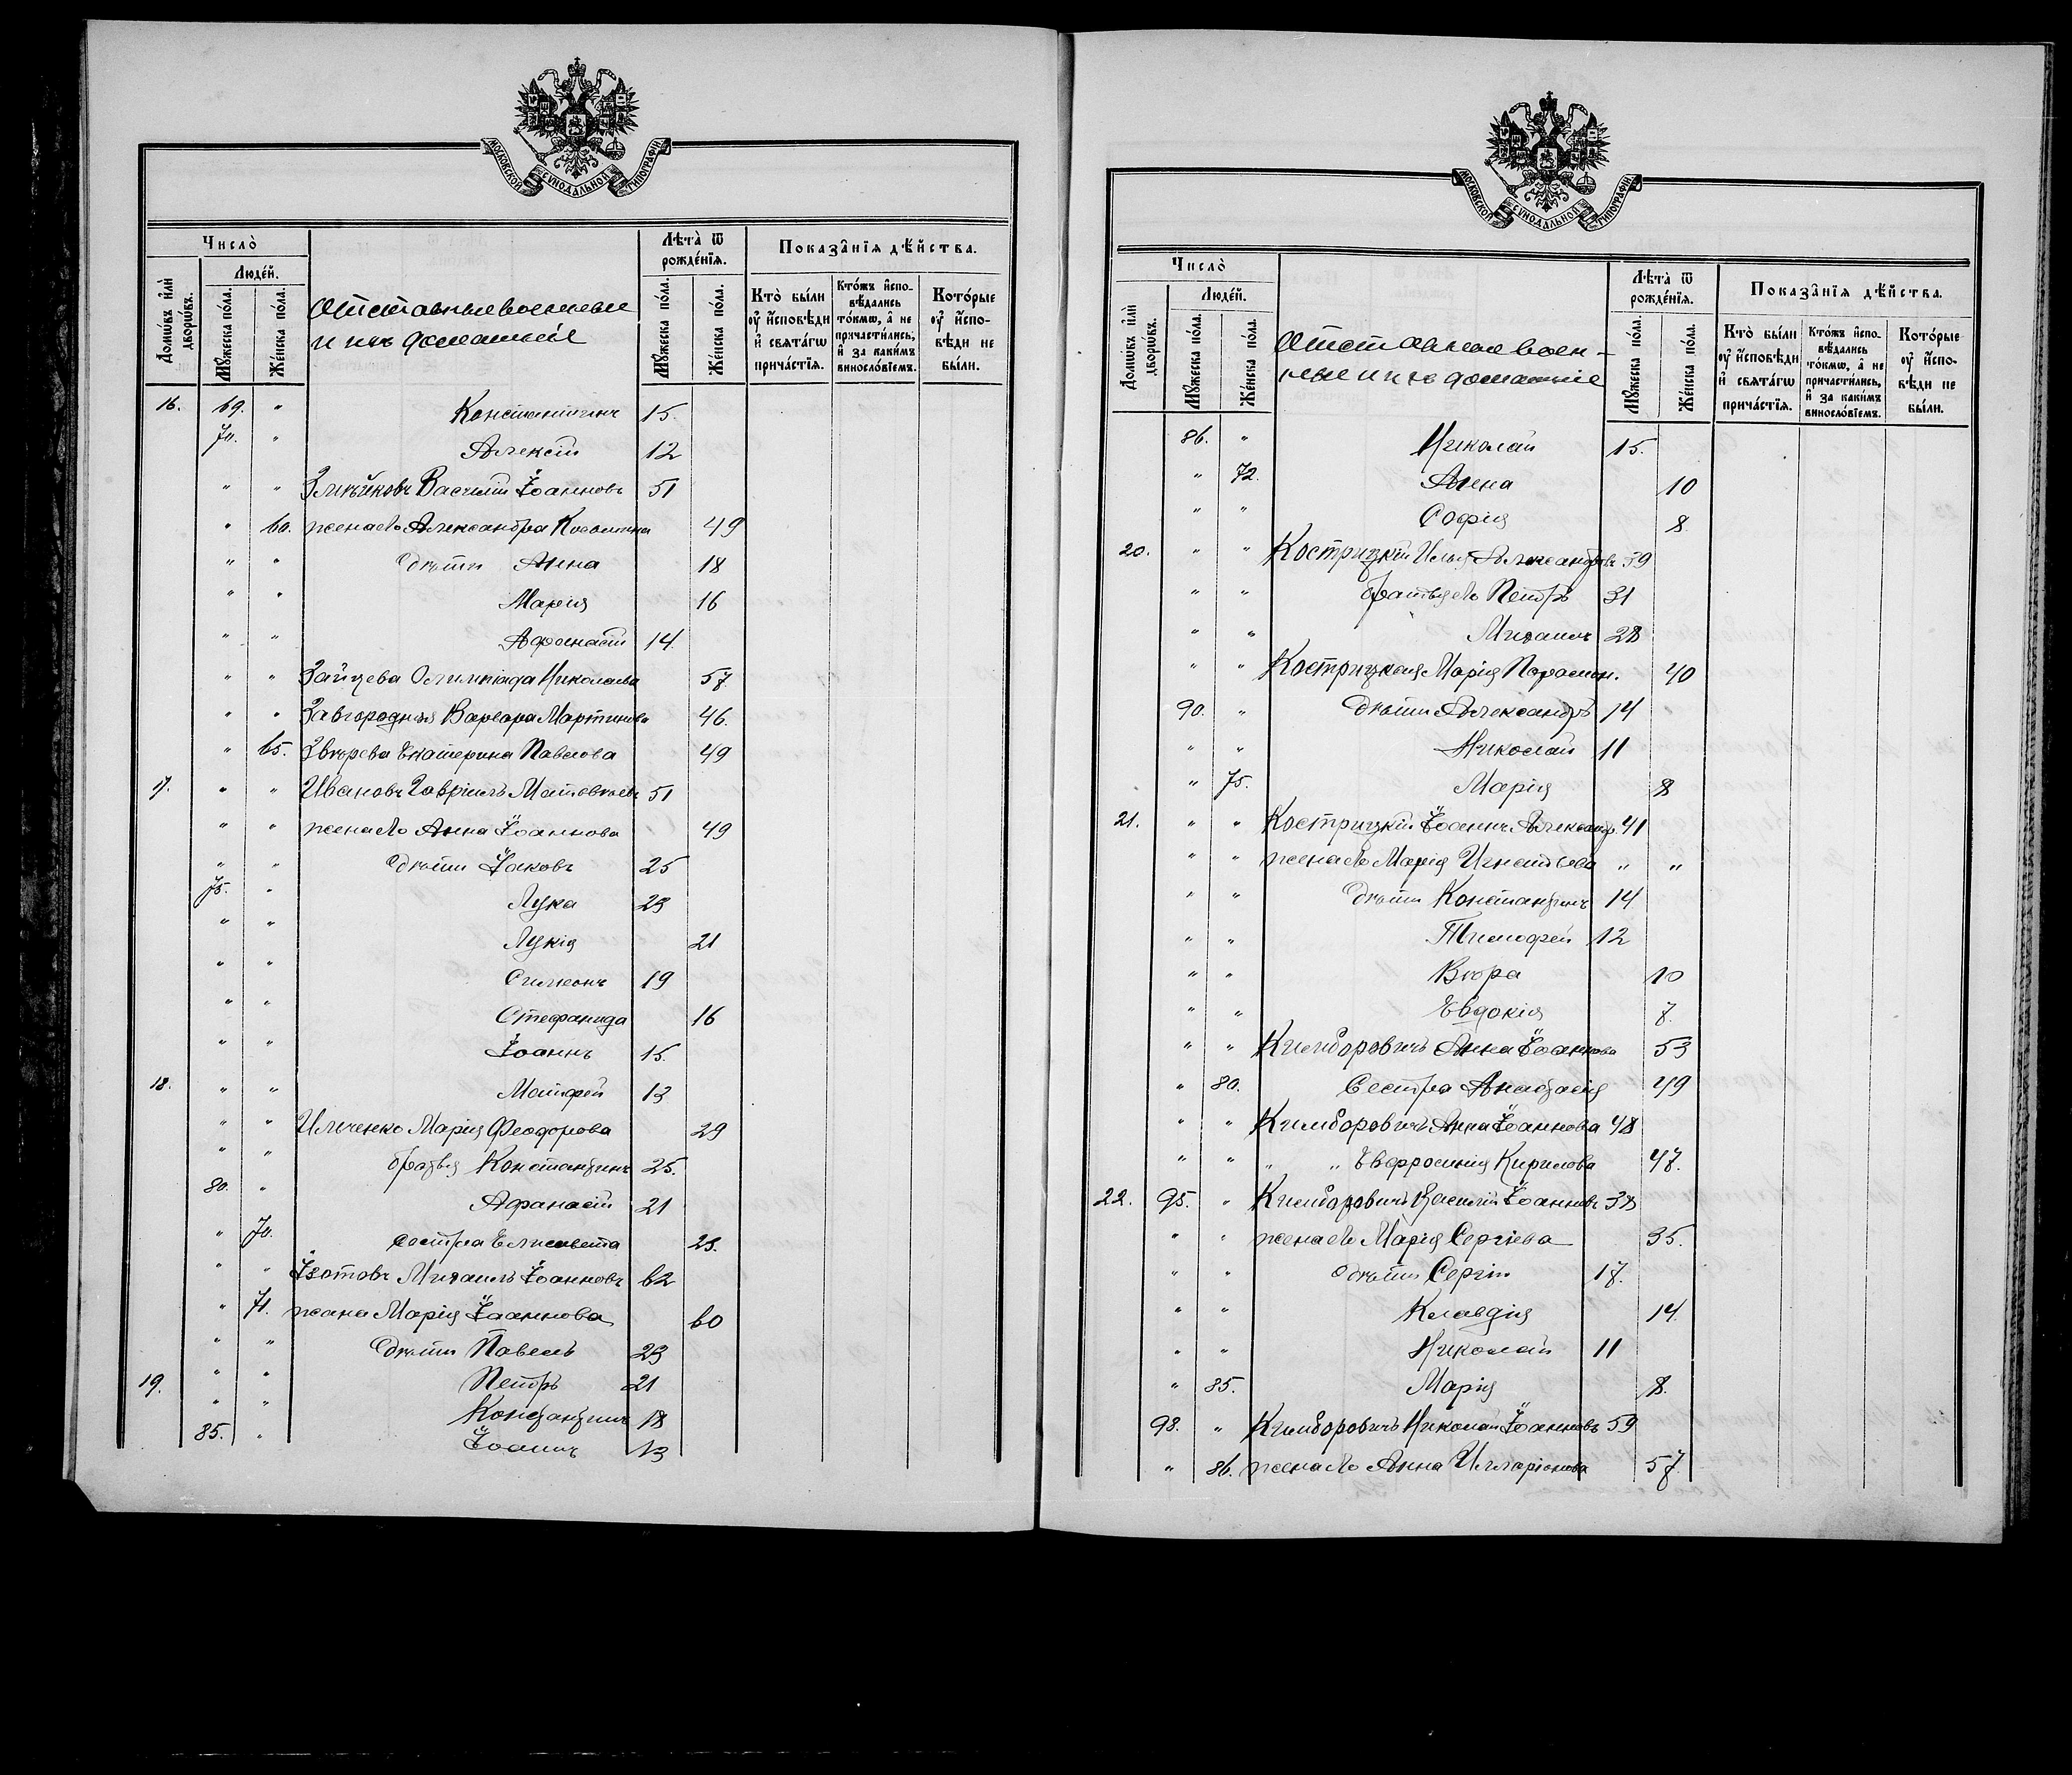 МОСКОВСКОЙ СѴНОДАЛЬНОЙ ТИПОГРАФІИ
Число̀
Домѡ́въ и҆лѝ дворѡ́въ.
Люде́й.
Мꙋ́жеска по́ла.
Же́нска по́ла.
Отставные военные
и ихъ домашніе
Лѣта̀ ѿ рожде́нїѧ.
Мꙋ́жеска по́ла.
Же́нска по́ла.
Показа̑нїѧ дѣ́йства.
Кто̀ бы́ли ᲂу҆ и҆сповѣ́ди и҆ свѧта́гѡ прича́стїѧ.
Кто́жъ и҆сповѣ́дались то́кмѡ, а҆ не причасти́лись, и҆ за каки́мъ винословїемъ.
Кото́рые ᲂу҆ и҆сповѣ́ди не бы́ли.
16. 69. " Константинъ 15.
70. " Алексій 12
" " Змѣйковъ Василій Іоанновъ 51
" 60. жена его Александра Косьмина 49
" " дѣти Анна 18
" " Марія 16
" " Афонасій 14.
" " Зайцева Олимпіада Николаева 57
" " Завгородняя Варвара Мартинова 46.
" 65. Звѣрева Екатерина Павлова 49
17. " " Ивановъ Гавріилъ Матовѣевъ 51
" " жена его Анна Іоаннова 49
" " дѣти Іаковъ 25
75. " Лука 23
" " Лукія 21
" " Симеонъ 19
" " Стефанида 16
" " Іоаннъ 15.
18. " " Матфей 13
" " Ильченко Марія Феодорова 29
" " братья Константинъ 25.
80. " Афанасій 21
" 70. сестра Елисавета 23.
" " Изотовъ Михаилъ Іоанновъ 62
" 71. жена Марія Іоаннова 60
" " дѣти Павелъ 23
19. " " Петръ 21
" " Константинъ 18
85. " Іоаннъ 13
МОСКОВСКОЙ СѴНОДАЛЬНОЙ ТИПОГРАФІИ
Число̀
Домѡ́въ и҆лѝ дворѡ́въ.
Люде́й.
Мꙋ́жеска по́ла.
Же́нска по́ла.
Отставные воен-
ные и ихъ домашніе
Лѣта̀ ѿ рожде́нїѧ.
Мꙋ́жеска по́ла.
Же́нска по́ла.
Показа̑нїѧ дѣ́йства.
Кто̀ бы́ли ᲂу҆ и҆сповѣ́ди и҆ свѧта́гѡ прича́стїѧ.
Кто́жъ и҆сповѣ́дались то́кмѡ, а҆ не причасти́лись, и҆ за каки́мъ винословїемъ.
Кото́рые ᲂу҆ и҆сповѣ́ди не бы́ли.
86. " Николай 15.
" 72. Анна 10
" " Софія 8
20. " " Кострицкій Илья Александровъ 39
" " братья его Петръ 31
" " Михаилъ 28
" " Кострицкая Марія Парамон. 40
90. " дѣти Александръ 14
" " Николай 11
" 75. Марія 8
21. " " Кострицкій Іоаннъ Александр. 41
" " жена его Марія Игнатьева " "
" " дѣти Константинъ 14
" " Тимофей 12
" " Вѣра 10
" " Евдокія 7.
" " Кимборовичъ Анна Іоаннова 53
" 80. Сестра Анастасія 49
" " Кимборовичъ Анна Іоаннова 48
" " " " Евфросинія Кирилова 47.
22. 95. " Кимборовичъ Василій Іоанновъ 38
" " жена его Марія Сергіева 35.
" " дѣти Сергій 17.
" " Клавдія 14.
" " Николай 11
" 85. Марія 8.
98. " Кимборовичъ Николай Іоанновъ 59
" 86. жена его Анна Илларіонова 57.